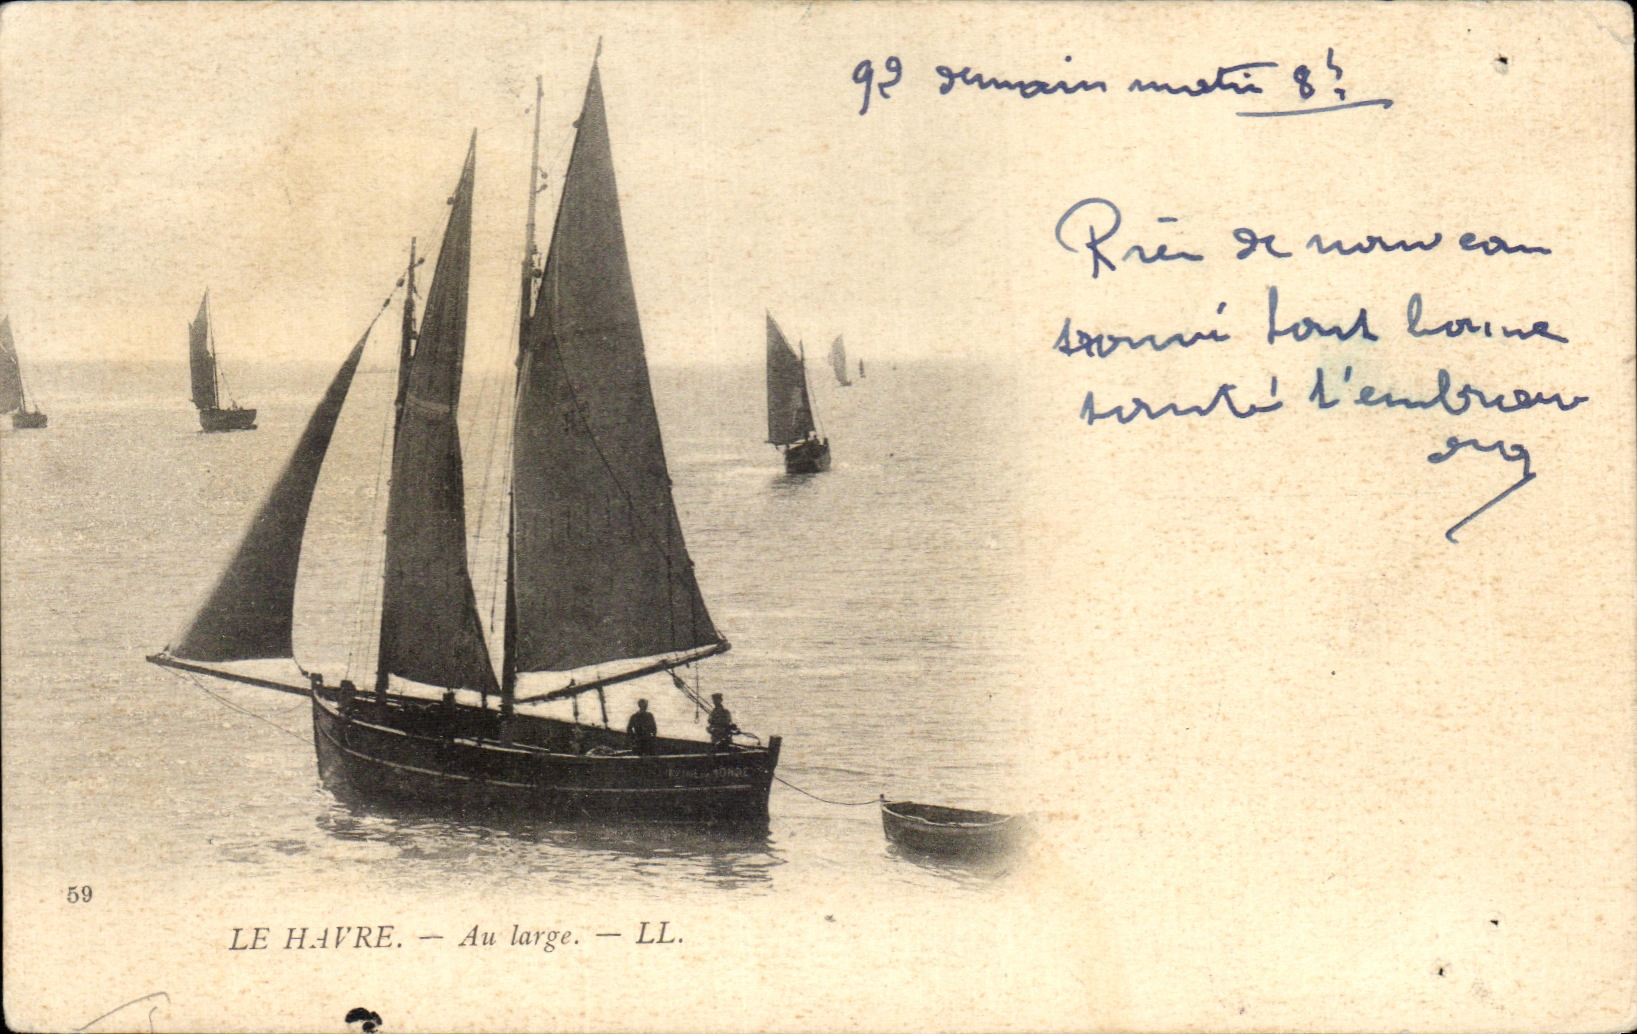 demain matin 8h
Rien de nouveau
trouvé tout bonne
santé t'embrasse
59
LE HAVRE. — Au large. — LL.